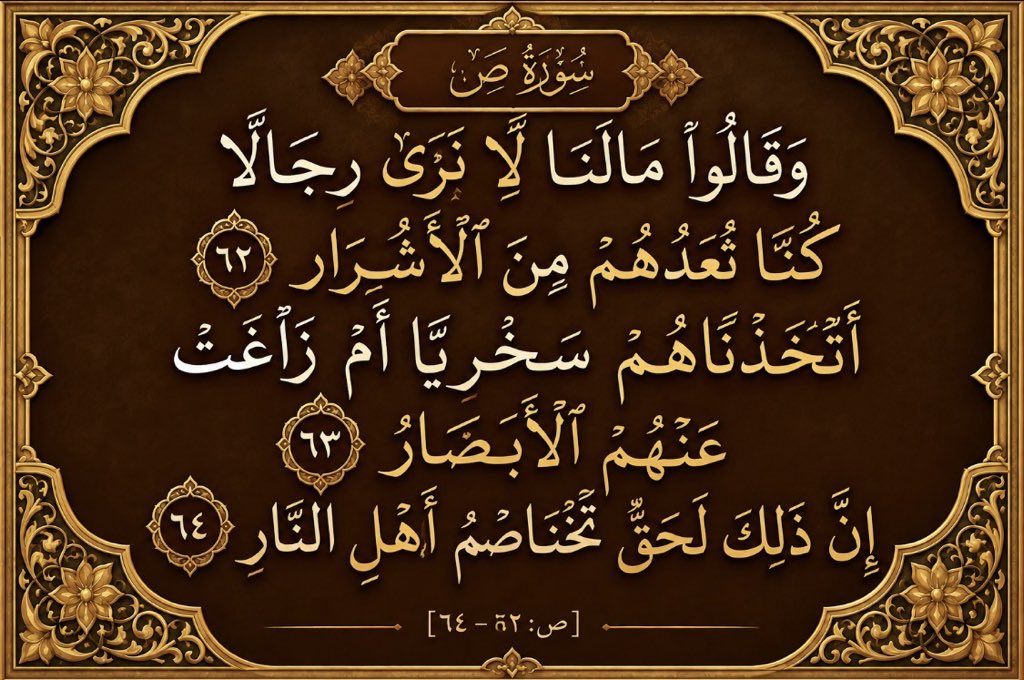 سُورَةُ صٓ
وَقَالُوا۟ مَالَنَا لَا نَرَىٰ رِجَالًا
كُنَّا نُعَدُهُمْ مِنَ ٱلْأَشْرَارِ ٦٢
أَتَّخَذْنَاهُمْ سَخْرِيًّا أَمْ زَاغَتْ
عَنْهُمْ ٱلْأَبَصَارُ ٦٣
إِنَّ ذَلِكَ لَحَقٌّ تَخْنَاصْمُ أَهْلِ النَّارِ ٦٤
[ص: ٦٢ – ٦٤]